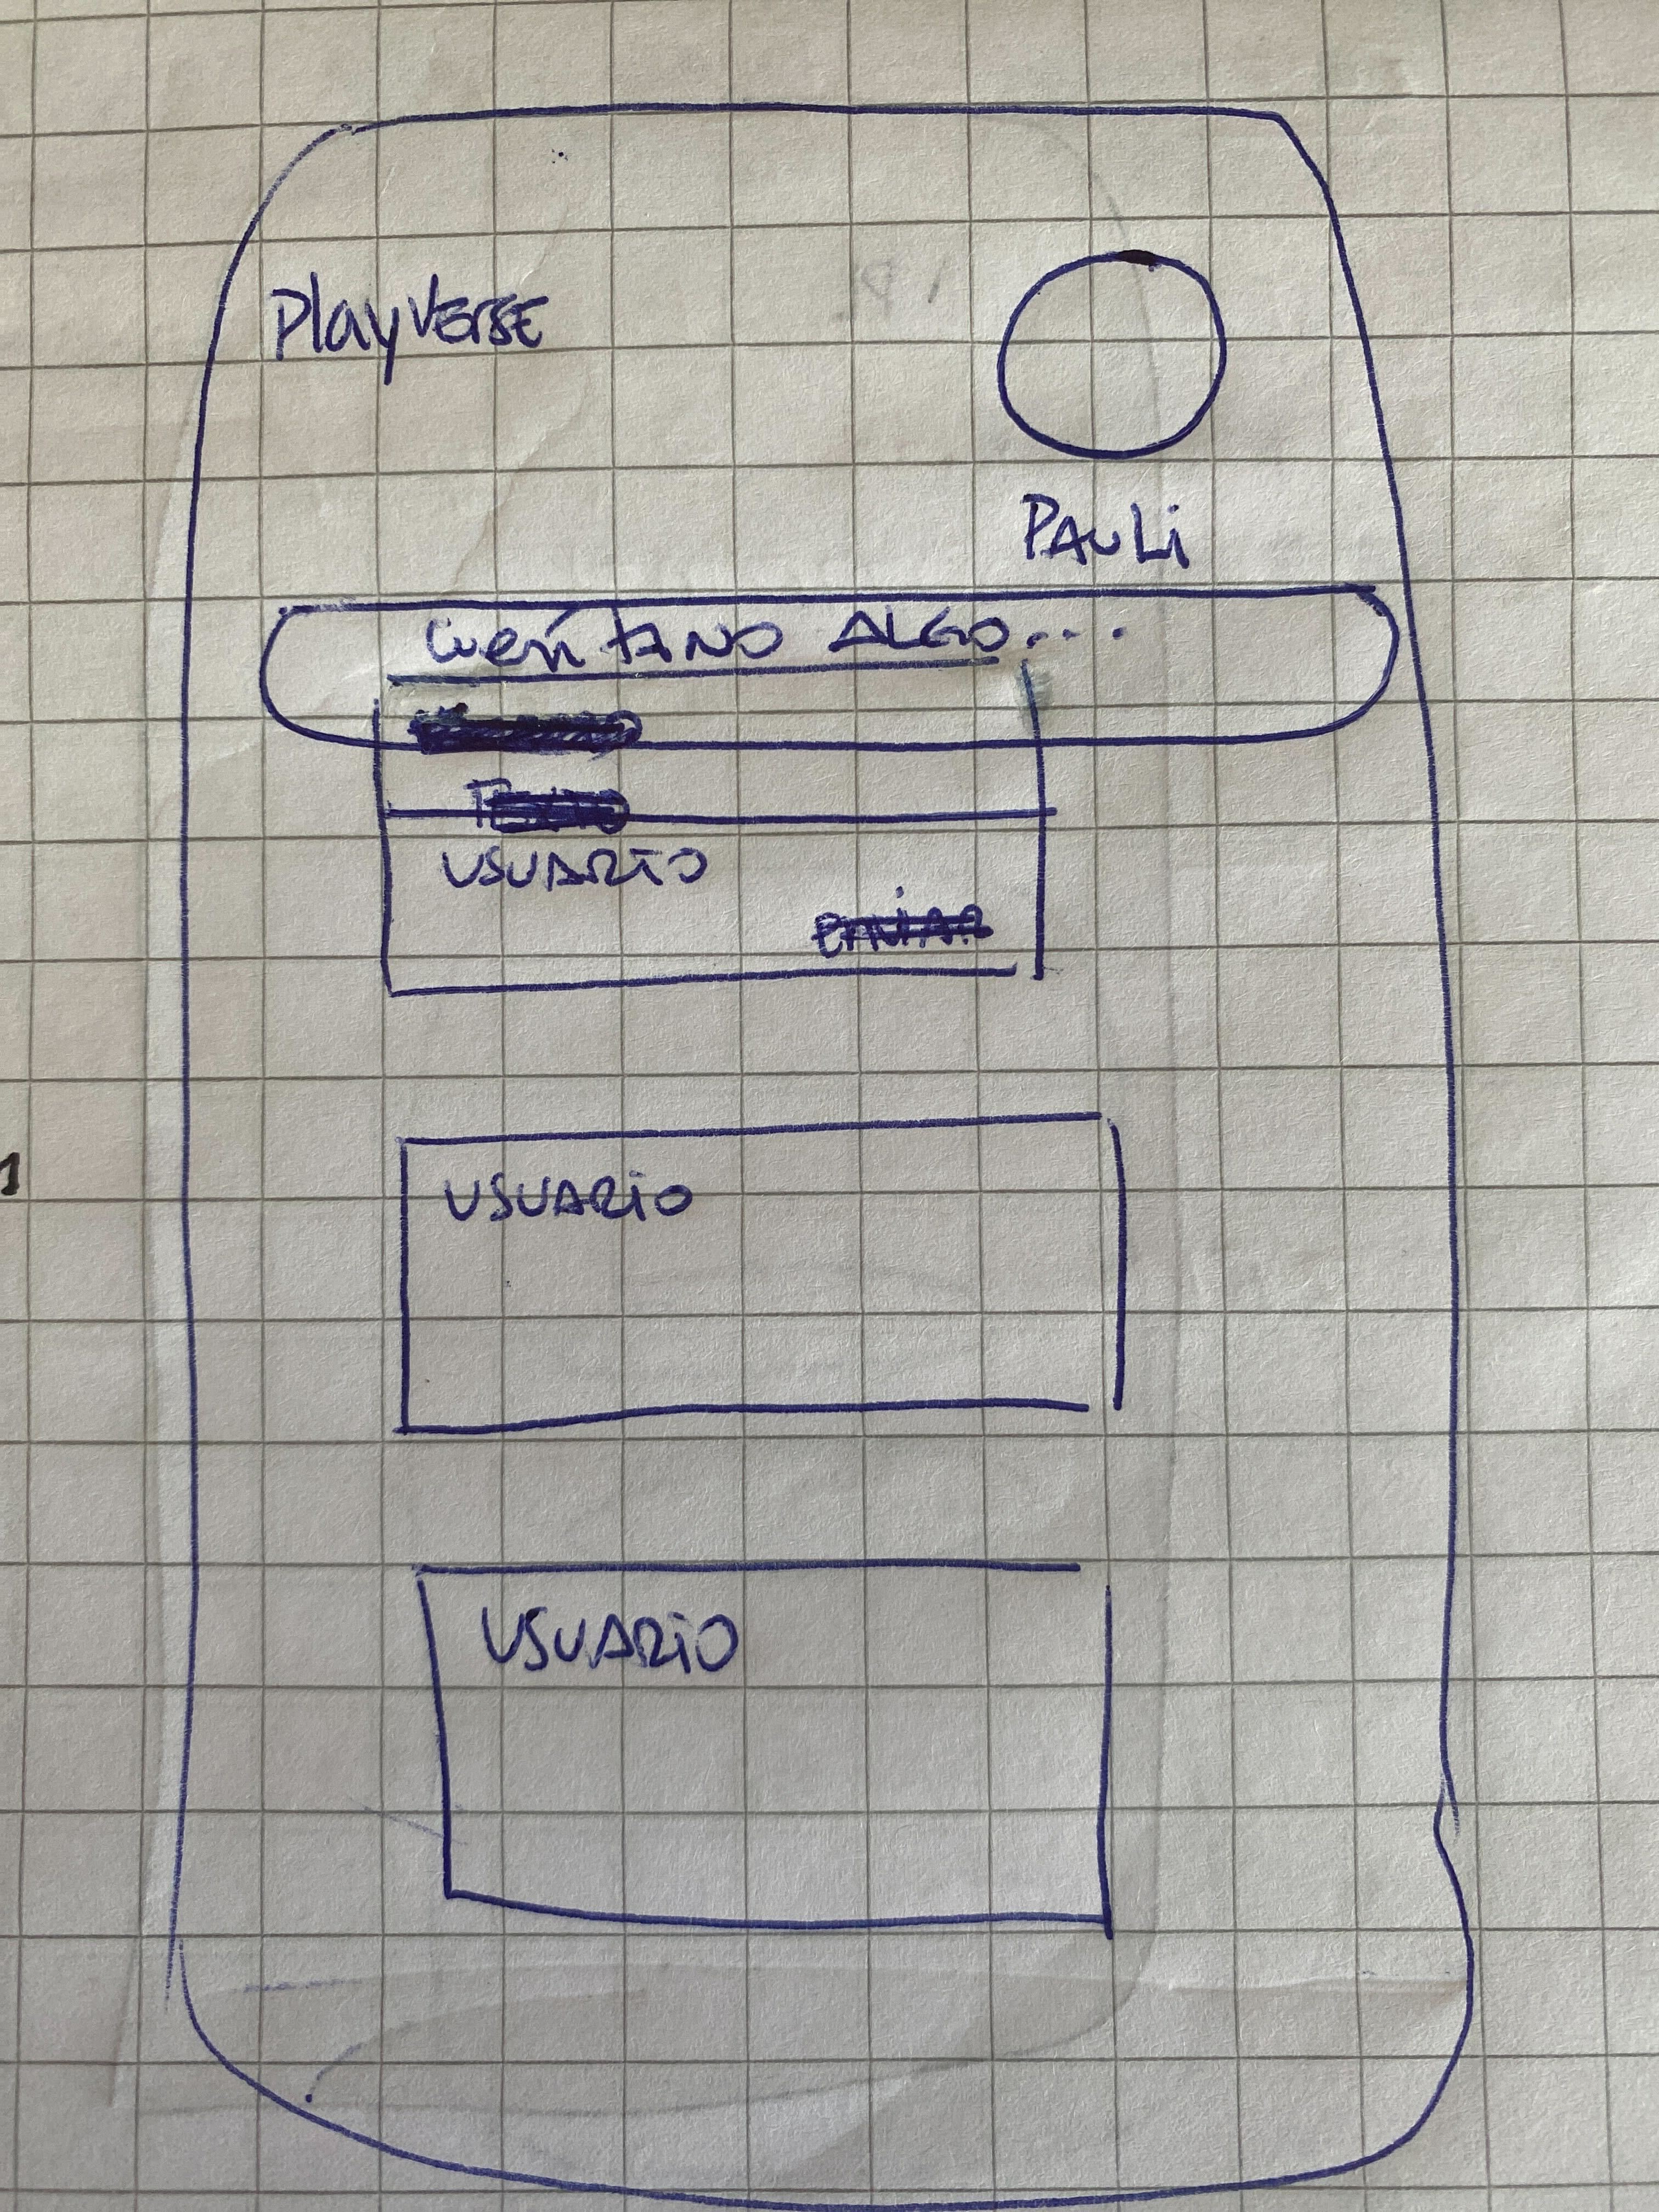 PlayVERSE
PAULi
CuéNTANO ALGO...
USUARiO
ENViAR
USUARiO
USUARiO